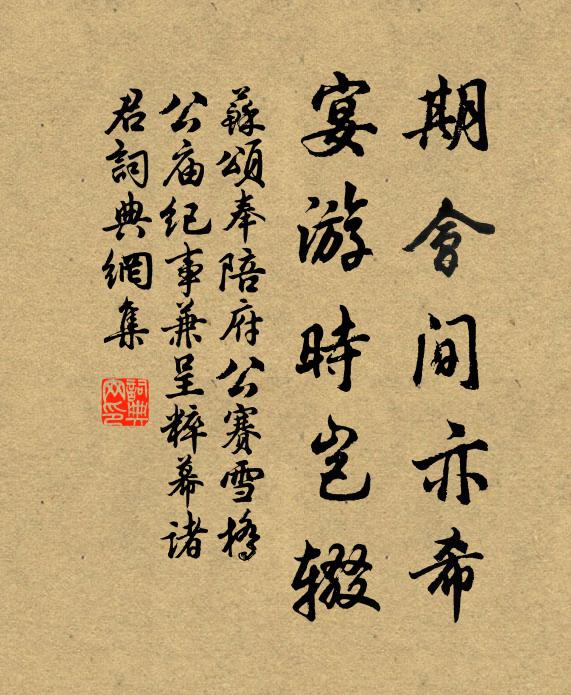 期會間亦希
宴游時岂辍
蘇頌奉陪府公賽雪橋
公庙纪事兼呈粹幕诸
君詞典網集
詞典网印